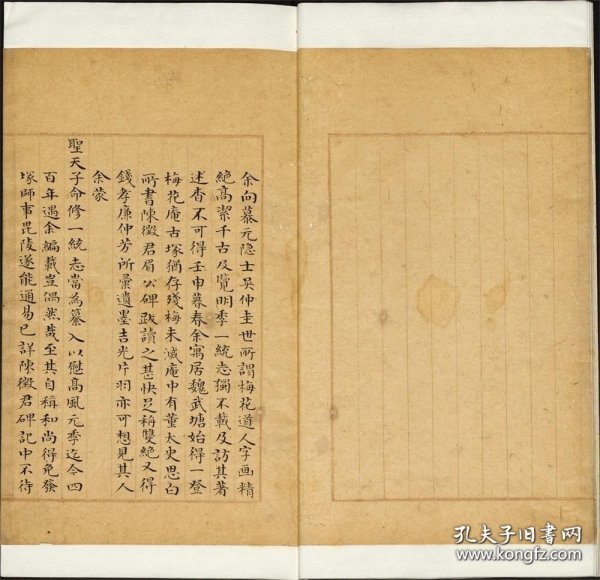 余向慕元隐士吴仲圭世所謂梅花道人字画精
絶高潔千古及覽明季一統志獨不載及訪其著
述杳不可得壬申暮春余寓居魏武塘始得一登
梅花庵古塚猶存殘梅未滅庵中有董太史思白
所書陳徵君眉公碑跋讀之甚快足稱雙絶又得
錢孝廉仲芳所彙遺墨吉光片羽亦可想見其人
余蒙
聖天子命修一統志當為纂入以慰高風元季迄今四
百年遇余編載豈偶然哉至其自稱和尚得免發
塚師事毘陵遂能通易已詳陳徵君碑記中不待
孔夫子旧书网
www.kongfz.com